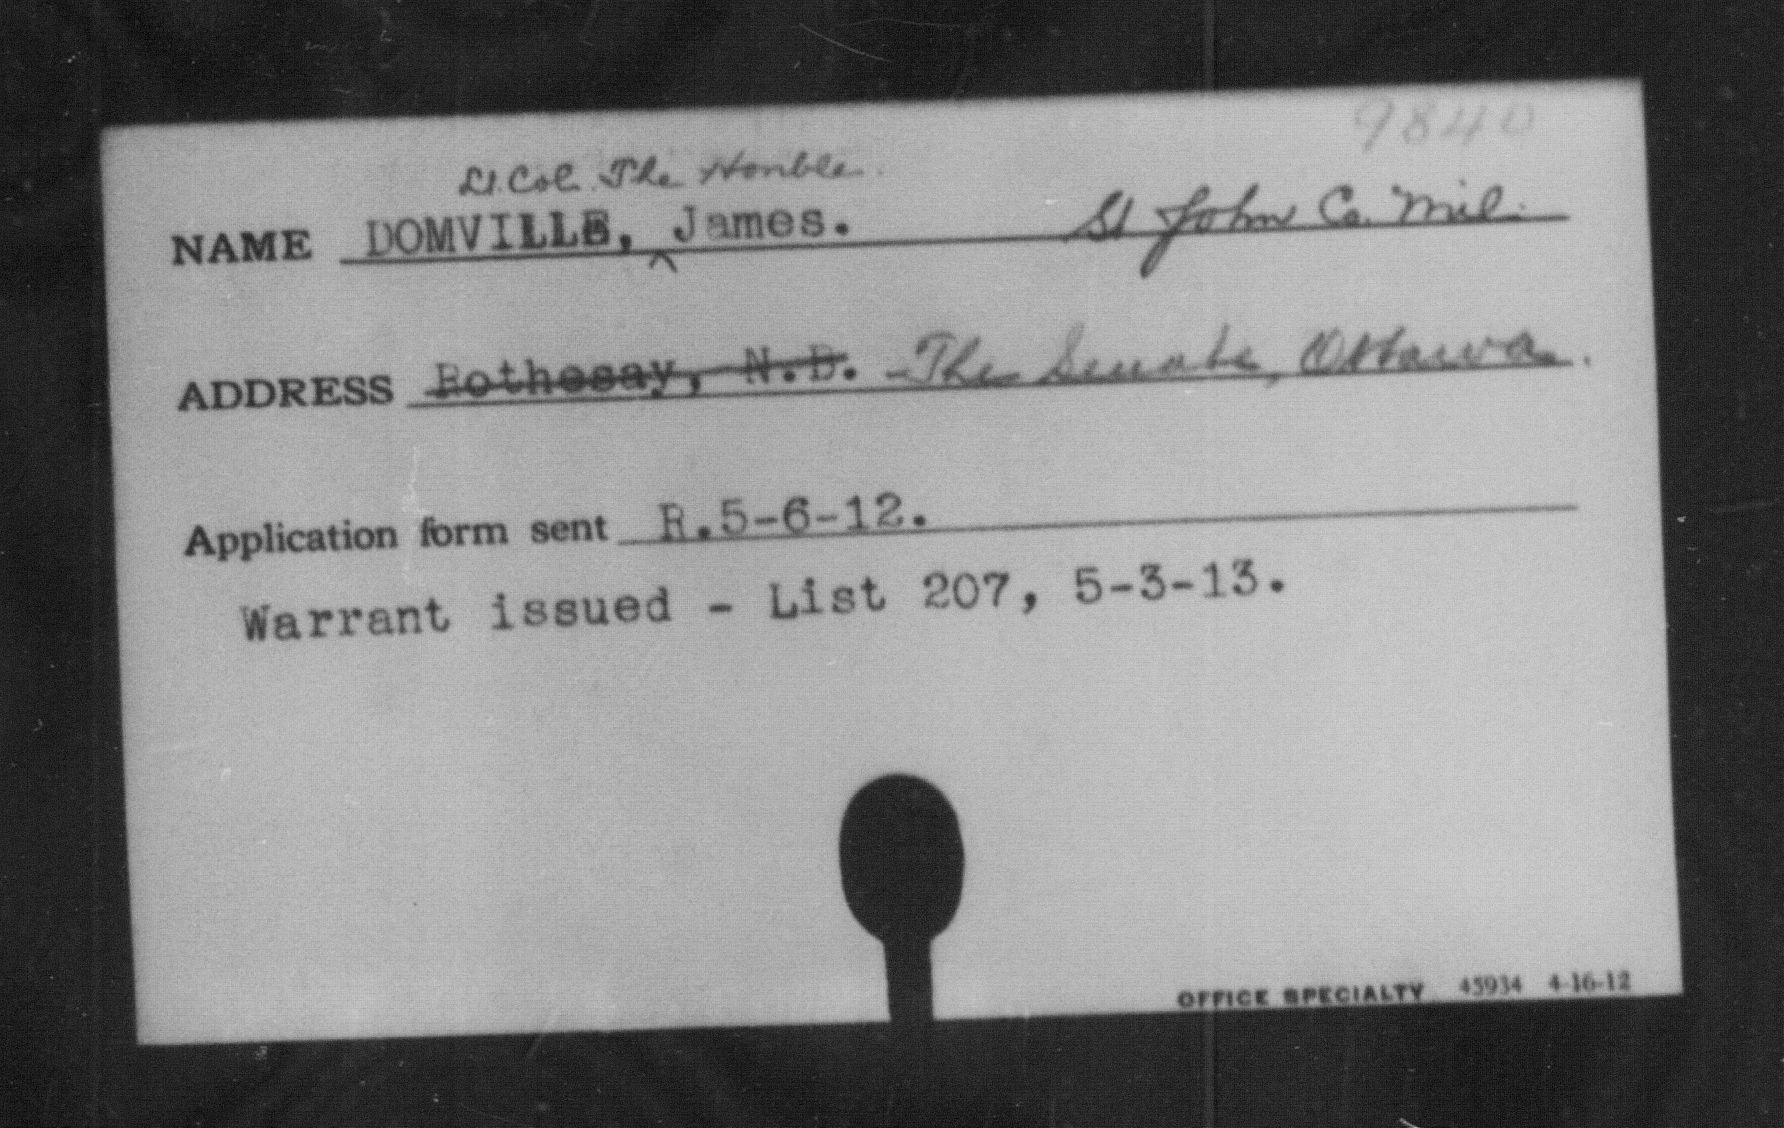 9840
Lt. Col. The Honble.
NAME DOMVILLE, James. St John Co. Mil.
ADDRESS Rothesay, N.B. - The Senate, Ottawa.
Application form sent R.5-6-12.
Warrant issued - List 207, 5-3-13.
OFFICE SPECIALTY 45934 4-16-12